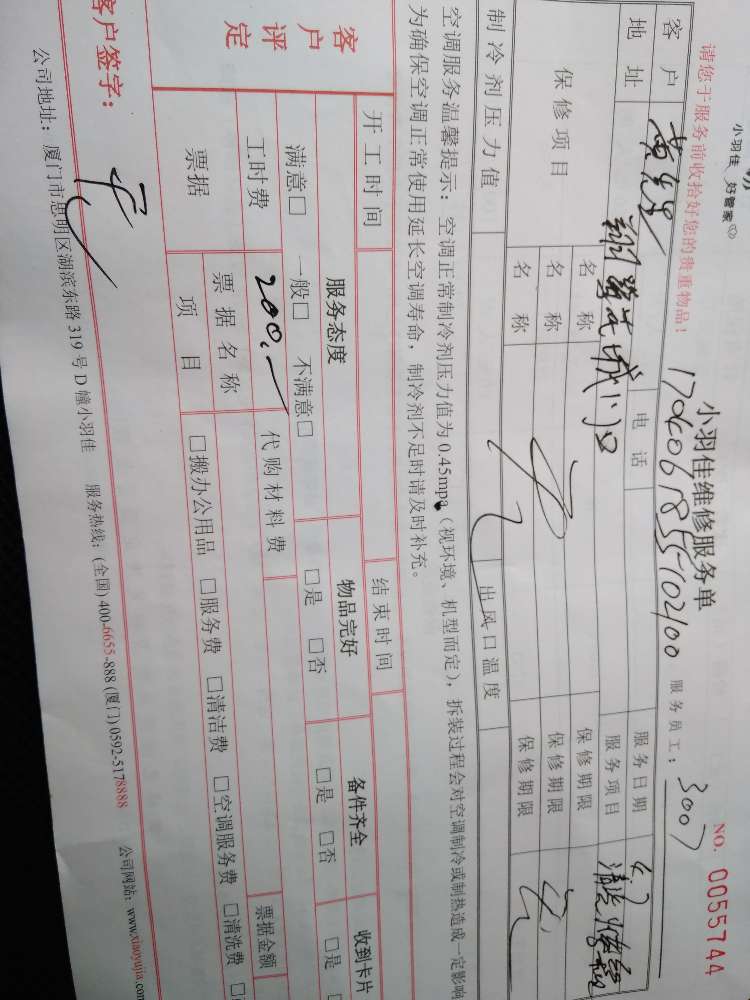 小羽佳 好管家
小羽佳维修服务单
NO. 0055744
请您于服务前收拾好您的贵重物品！
1704061855102100
服务员工：3007
客户
电话
服务日期
地址
服务项目
保修项目
名称
保修期限
名称
保修期限
名称
保修期限
制冷剂压力值
出风口温度
空调服务温馨提示：空调正常制冷剂压力值为0.45mpa（视环境、机型而定），拆装过程会对空调制冷或制热造成一定影响
为确保空调正常使用延长空调寿命，制冷剂不足时请及时补充。
开工时间
结束时间
客户评定
服务态度
物品完好
备件齐全
收到卡片
满意□ 一般□ 不满意□
□是 □否
□是 □否
□是
工时费
200.-
代购材料费
票据
票据名称
票据金额
项目
□搬办公用品 □服务费 □清洁费 □空调服务费 □清洗费
客户签字：
公司地址：厦门市思明区湖滨东路319号D幢小羽佳 服务热线：(全国)400-6655-888 (厦门)0592-5178888 公司网站：www.xiaoyujia.com